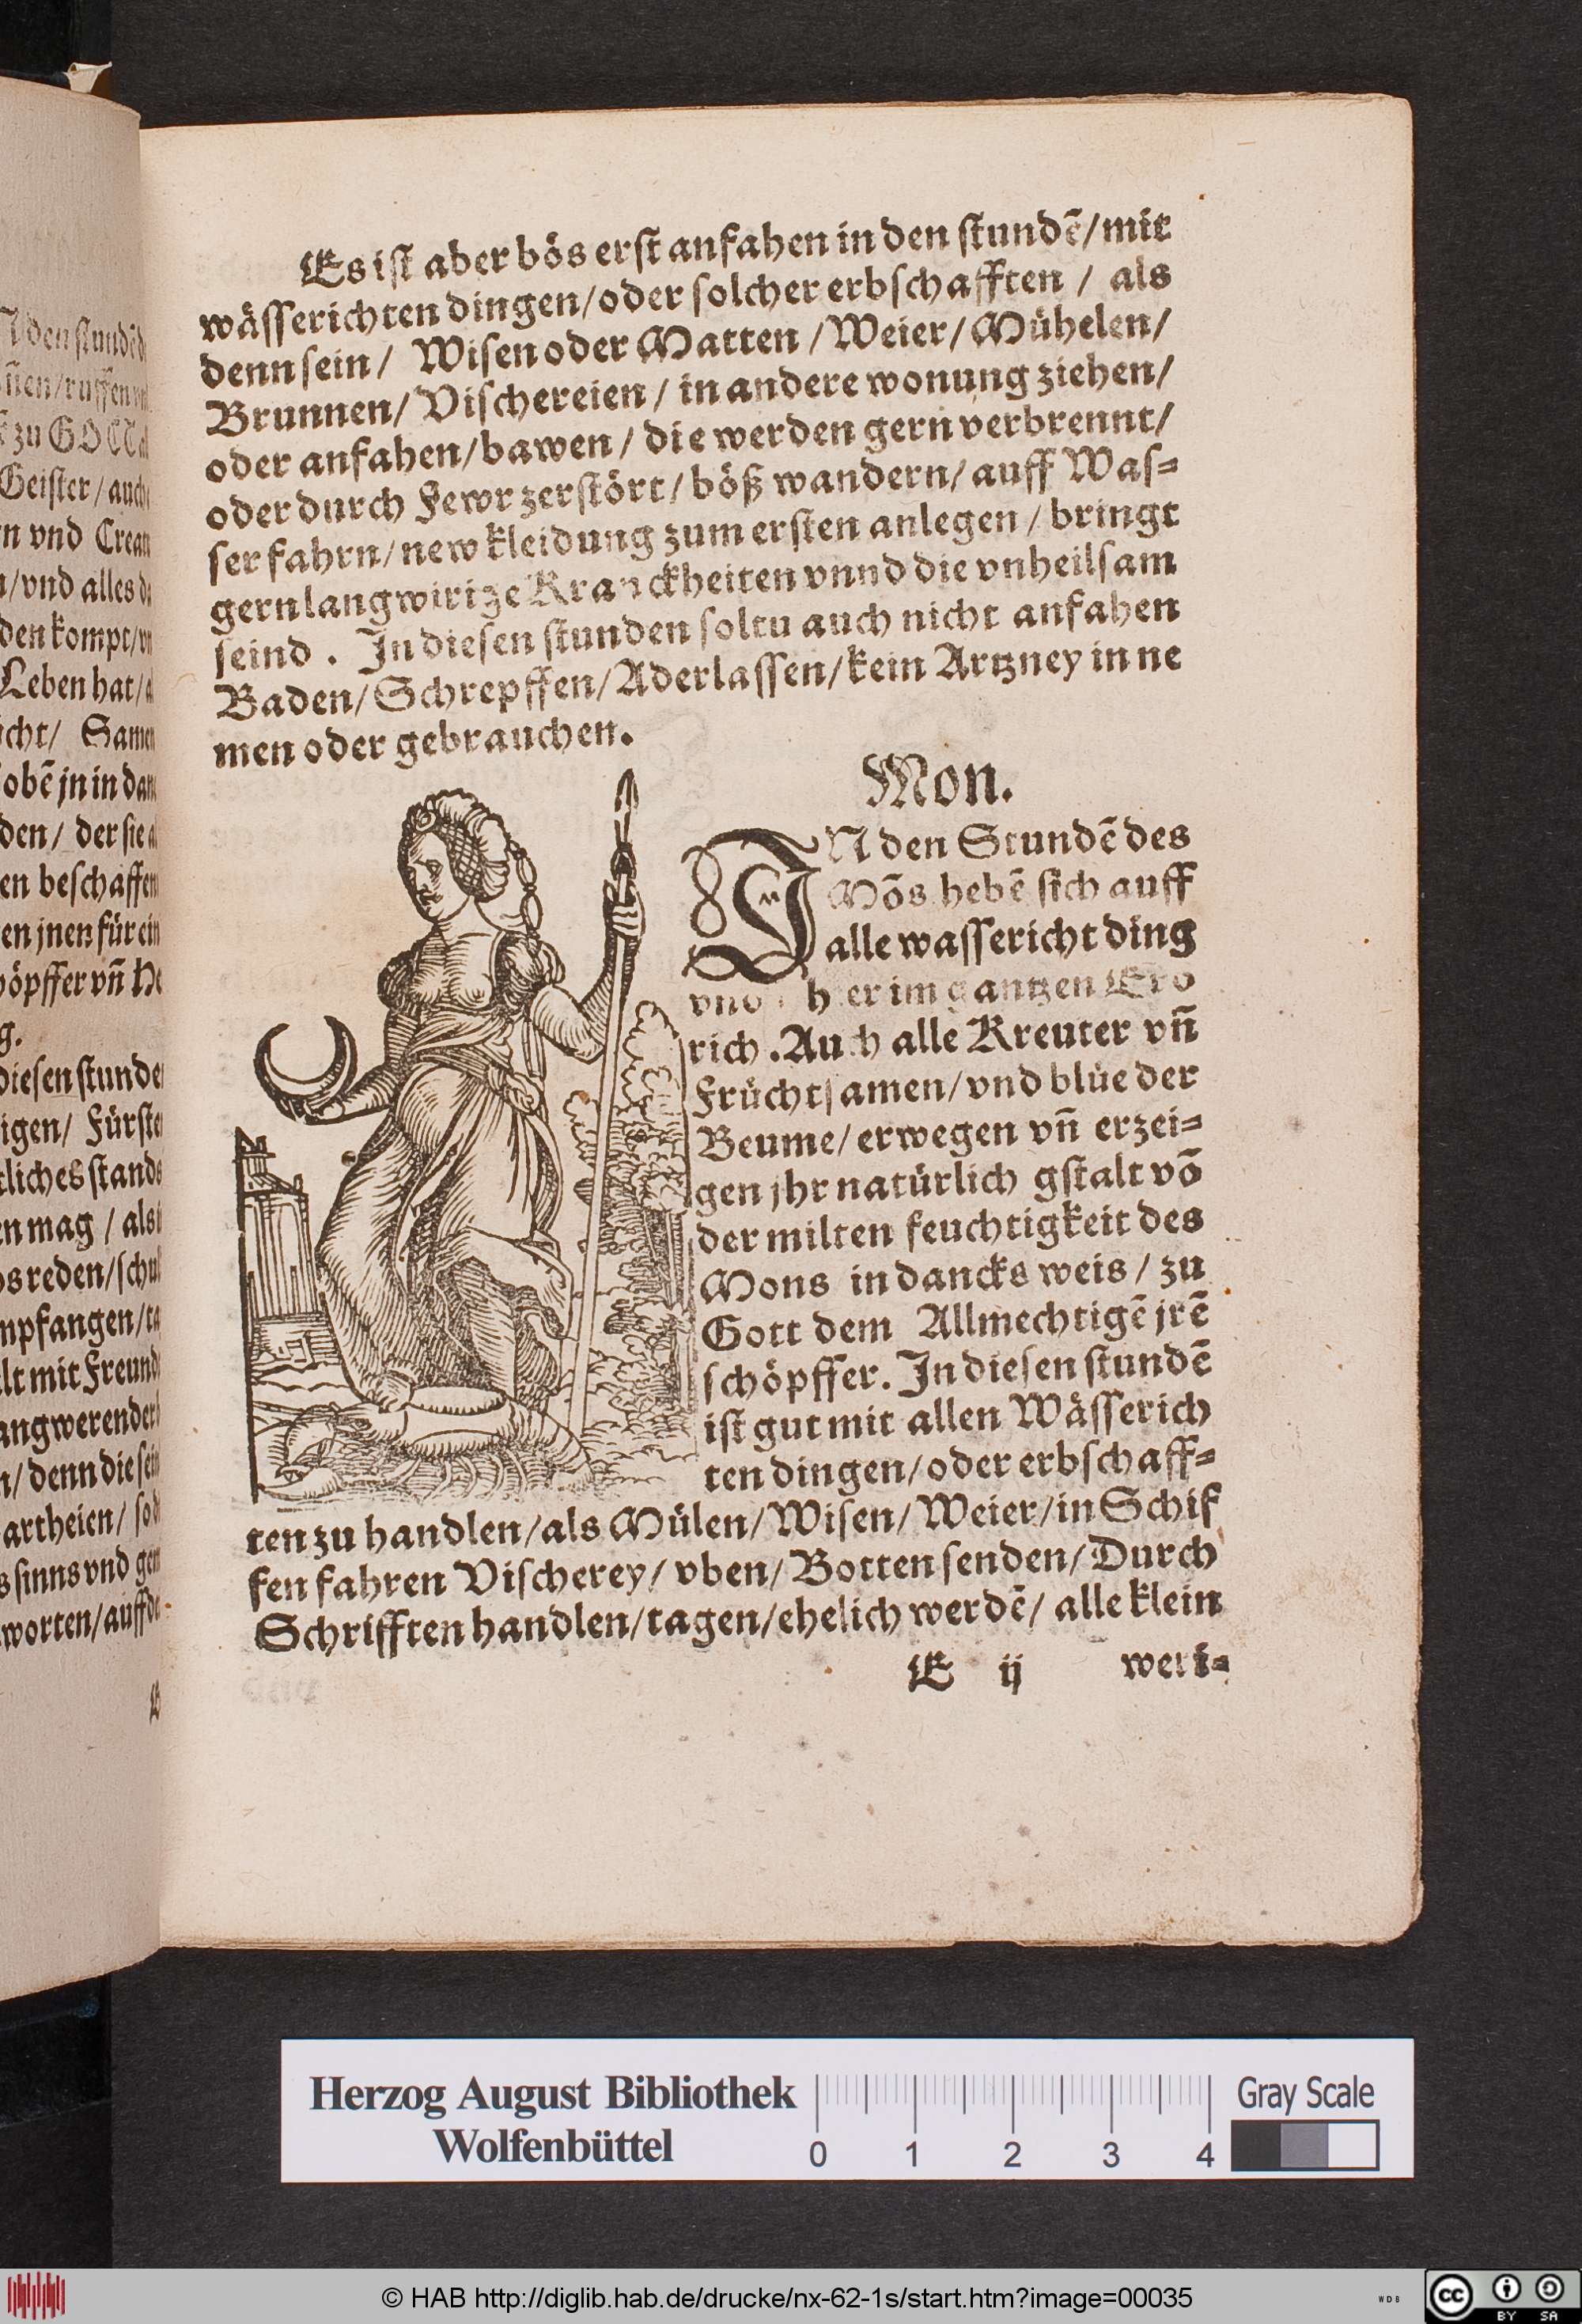 N den stundē d
nen/ruffen
zu GOTT
Geister/auch
n vnd Crea
n/vnd alles d
den kompt/v
Leben hat/
cht/ Samen
obē jn in dan
den/ der sie
en beschaffen
en jnen für ein
öpffer vñ He
g.
diesen stunde
igen/ Fürste
tliches stands
en mag / als
os reden/schul
mpfangen/
lt mit Freund
angwerender
n/denn die sei
artheien/ so
s sinns vnd
worten/auff
Es ist aber bös erst anfahen in den stundē/mit
wässerichten dingen/oder solcher erbschafften / als
denn sein/ Wisen oder Matten /Weier/Mühelen/
Brunnen/ Vischereien / in andere wonung ziehen/
oder anfahen/bawen / die werden gern verbrennt/
oder durch Fewr zerstört/ böß wandern/ auff Was=
ser fahrn/new kleidung zum ersten anlegen / bringt
gern langwirige Kranckheiten vnnd die vnheilsam
seind . In diesen stunden soltu auch nicht anfahen
Baden/Schrepffen/Aderlassen/kein Artzney in ne
men oder gebrauchen.
Mon.
IN den Stundē des
Mōs hebē sich auff
alle wassericht ding
vnd hier im gantzen Erd
rich .Auch alle Kreuter vñ
Früchtsamen/vnd blüe der
Beume/erwegen vñ erzei=
gen jhr natürlich gstalt vō
der milten feuchtigkeit des
Mons in dancks weis / zu
Gott dem Allmechtigē jrē
schöpffer. In diesen stundē
ist gut mit allen Wässerich
ten dingen/oder erbschaff=
ten zu handlen/als Mülen/Wisen/Weier/in Schif
fen fahren Vischerey/ vben/Botten senden/Durch
Schrifften handlen/tagen/ehelich werdē/ alle klein
E ij weri=
Herzog August Bibliothek
Wolfenbüttel
0 1 2 3 4
Gray Scale
© HAB http://diglib.hab.de/drucke/nx-62-1s/start.htm?image=00035
WDB
cc BY SA